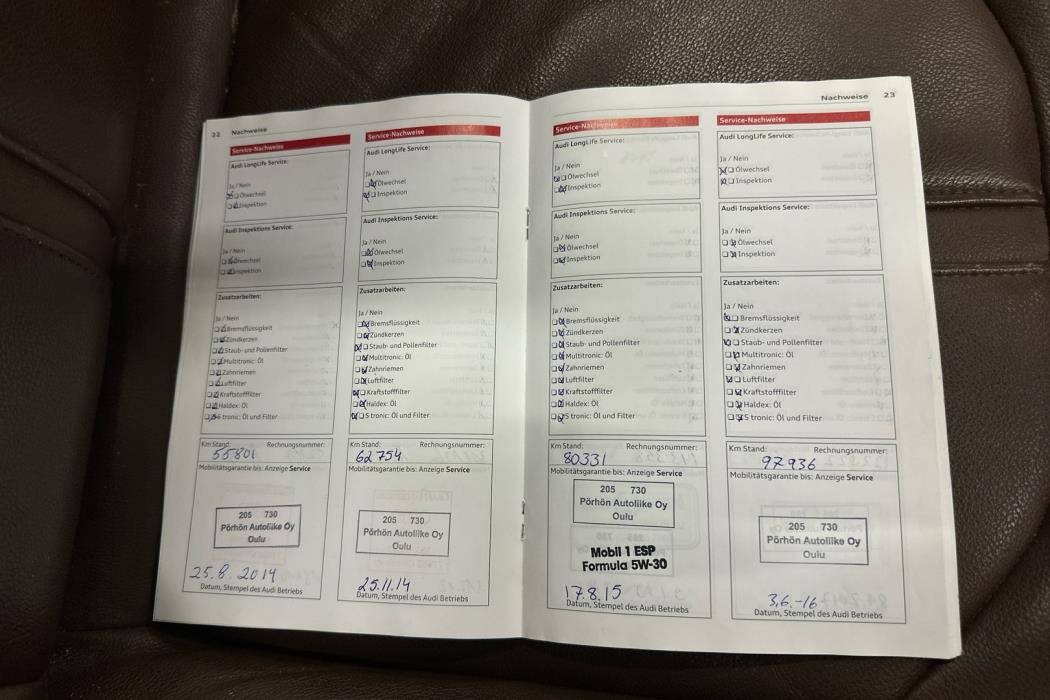 22 Nachweise
Service-Nachweise
Audi LongLife Service:
Ja / Nein
Ölwechsel
Inspektion
Audi Inspektions Service:
Ja / Nein
Ölwechsel
Inspektion
Zusatzarbeiten:
Ja / Nein
Bremsflüssigkeit
Zündkerzen
Staub- und Pollenfilter
Multitronic: Öl
Zahnriemen
Luftfilter
Kraftstofffilter
Haldex: Öl
S tronic: Öl und Filter
Km Stand: Rechnungsnummer:
55801
Mobilitätsgarantie bis: Anzeige Service
205 730
Pörhön Autoliike Oy
Oulu
25.8.2014
Datum, Stempel des Audi Betriebs
Service-Nachweise
Audi LongLife Service:
Ja / Nein
Ölwechsel
Inspektion
Audi Inspektions Service:
Ja / Nein
Ölwechsel
Inspektion
Zusatzarbeiten:
Ja / Nein
Bremsflüssigkeit
Zündkerzen
Staub- und Pollenfilter
Multitronic: Öl
Zahnriemen
Luftfilter
Kraftstofffilter
Haldex: Öl
S tronic: Öl und Filter
Km Stand: Rechnungsnummer:
62754
Mobilitätsgarantie bis: Anzeige Service
205 730
Pörhön Autoliike Oy
Oulu
25.11.14
Datum, Stempel des Audi Betriebs
Nachweise 23
Service-Nachweise
Audi LongLife Service:
Ja / Nein
Ölwechsel
Inspektion
Audi Inspektions Service:
Ja / Nein
Ölwechsel
Inspektion
Zusatzarbeiten:
Ja / Nein
Bremsflüssigkeit
Zündkerzen
Staub- und Pollenfilter
Multitronic: Öl
Zahnriemen
Luftfilter
Kraftstofffilter
Haldex: Öl
S tronic: Öl und Filter
Km Stand: Rechnungsnummer:
80331
Mobilitätsgarantie bis: Anzeige Service
205 730
Pörhön Autoliike Oy
Oulu
Mobil 1 ESP
Formula 5W-30
17.8.15
Datum, Stempel des Audi Betriebs
Service-Nachweise
Audi LongLife Service:
Ja / Nein
Ölwechsel
Inspektion
Audi Inspektions Service:
Ja / Nein
Ölwechsel
Inspektion
Zusatzarbeiten:
Ja / Nein
Bremsflüssigkeit
Zündkerzen
Staub- und Pollenfilter
Multitronic: Öl
Luftfilter
Kraftstofffilter
Haldex: Öl
S tronic: Öl und Filter
Km Stand: Rechnungsnummer:
97936
Mobilitätsgarantie bis: Anzeige Service
205 730
Pörhön Autoliike Oy
Oulu
3.6.-16
Datum, Stempel des Audi Betriebs